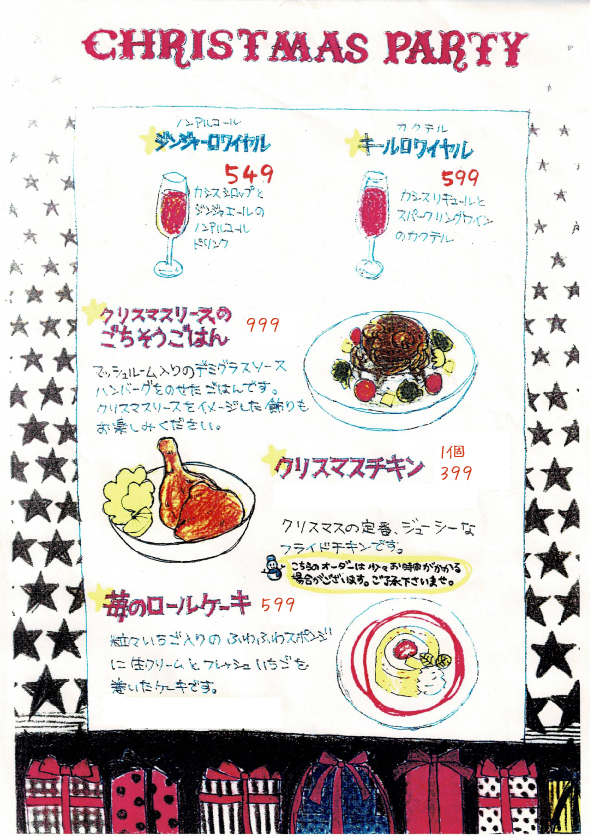 CHRISTMAS PARTY
ノンアルコール
ジンジャーロワイヤル
549
カシスシロップと
ジンジャエールの
ノンアルコール
ドリンク
カクテル
キールロワイヤル
599
カシスリキュールと
スパークリングワイン
のカクテル
クリスマスリースの
ごちそうごはん
999
マッシュルーム入りのデミグラスソース
ハンバーグをのせたごはんです。
クリスマスリースをイメージした飾りも
お楽しみください。
クリスマスチキン
1個
399
クリスマスの定番、ジューシーな
フライドチキンです。
こちらのオーダーは少々お時間がかかる
場合がございます。ご了承下さいませ。
苺のロールケーキ 599
粒々いちご入りのふわふわスポンジ
に生クリームとフレッシュいちごを
巻いたケーキです。